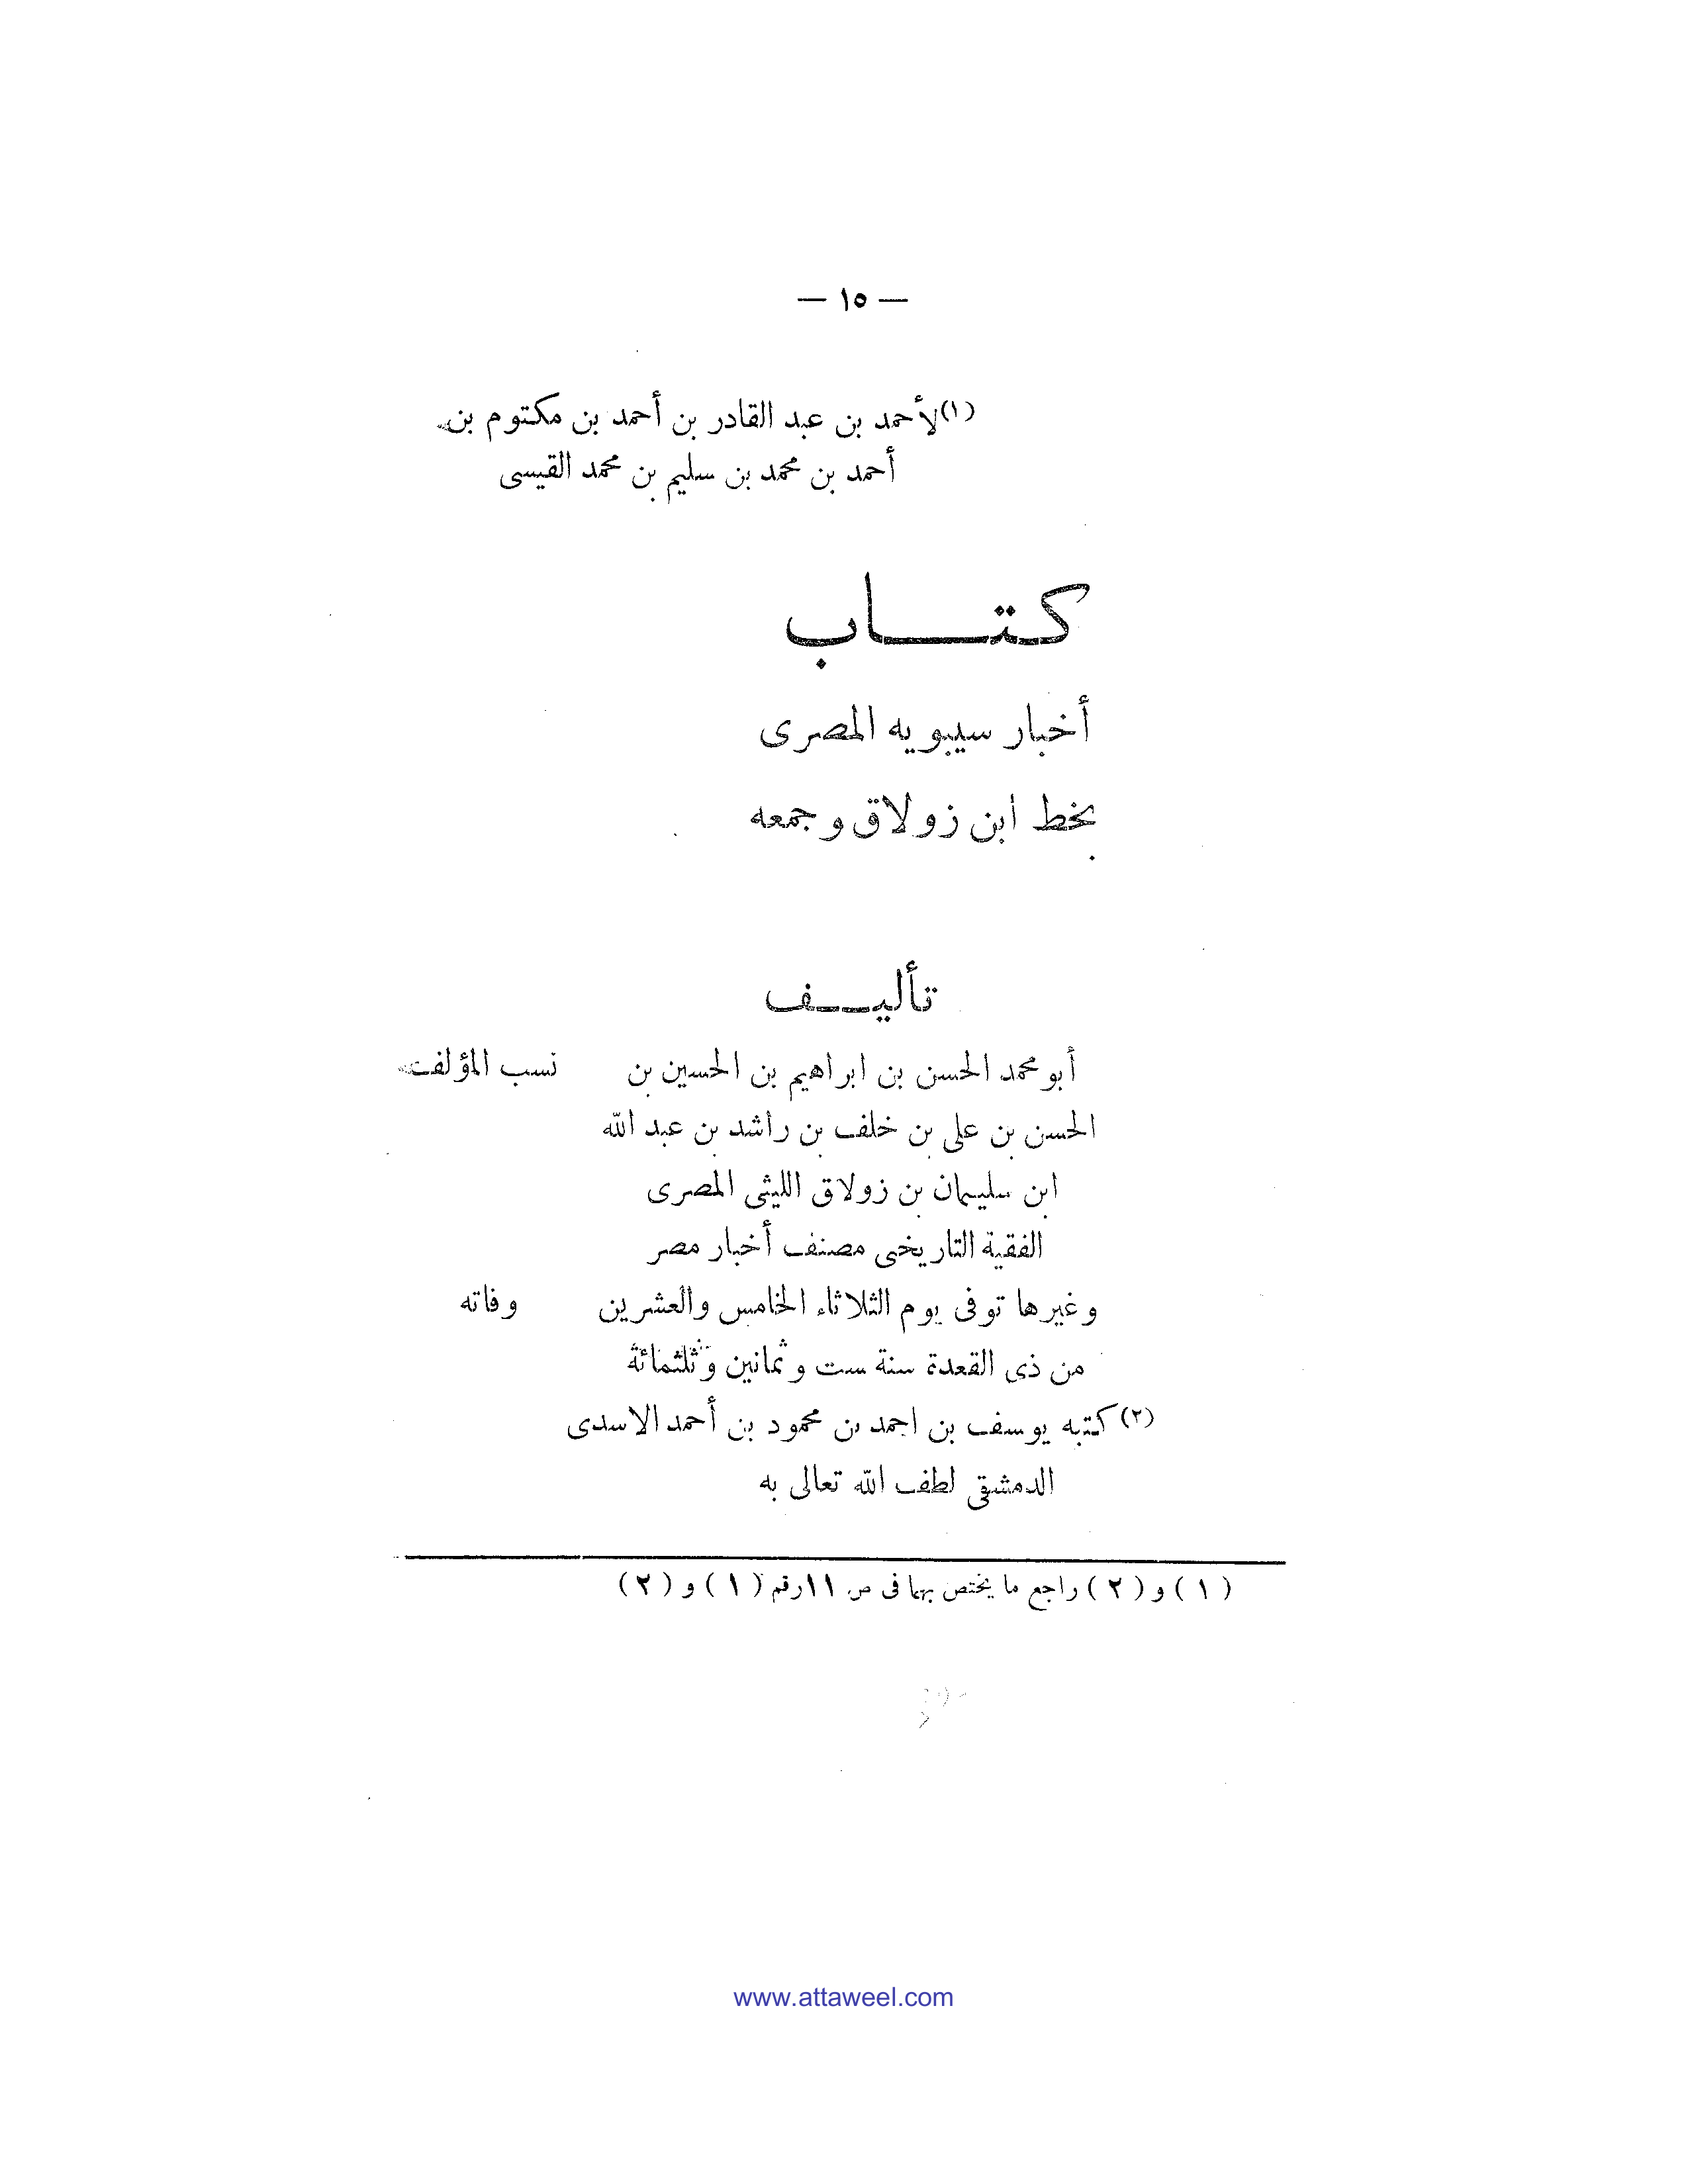 — ١٥ —
(١) لأحمد بن عبد القادر بن أحمد بن مكتوم بن
أحمد بن محمد بن سليم بن محمد القيسى
كتـــاب
أخبار سيبويه المصرى
بخط ابن زولاق وجمعه
تأليــف
أبو محمد الحسن بن ابراهيم بن الحسين بن نسب المؤلف
الحسن بن على بن خلف بن راشد بن عبد الله
ابن سليمان بن زولاق الليثى المصرى
الفقية التاريخى مصنف أخبار مصر
وغيرها توفى يوم الثلاثاء الخامس والعشرين وفاته
من ذى القعدة سنة ست وثمانين وثلثمائة
(٢) كتبه يوسف بن احمد بن محمود بن أحمد الاسدى
الدمشقى لطف الله تعالى به
(١) و (٢) راجع ما يختص بهما فى ص ١١ رقم (١) و (٢)
www.attaweel.com